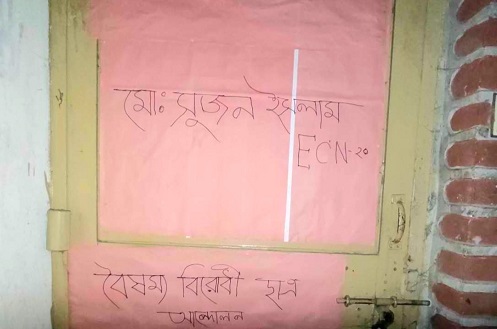 মোঃ সুজন ইসলাম
ECN-২০
বৈষম্য বিরোধী ছাত্র
আন্দোলন